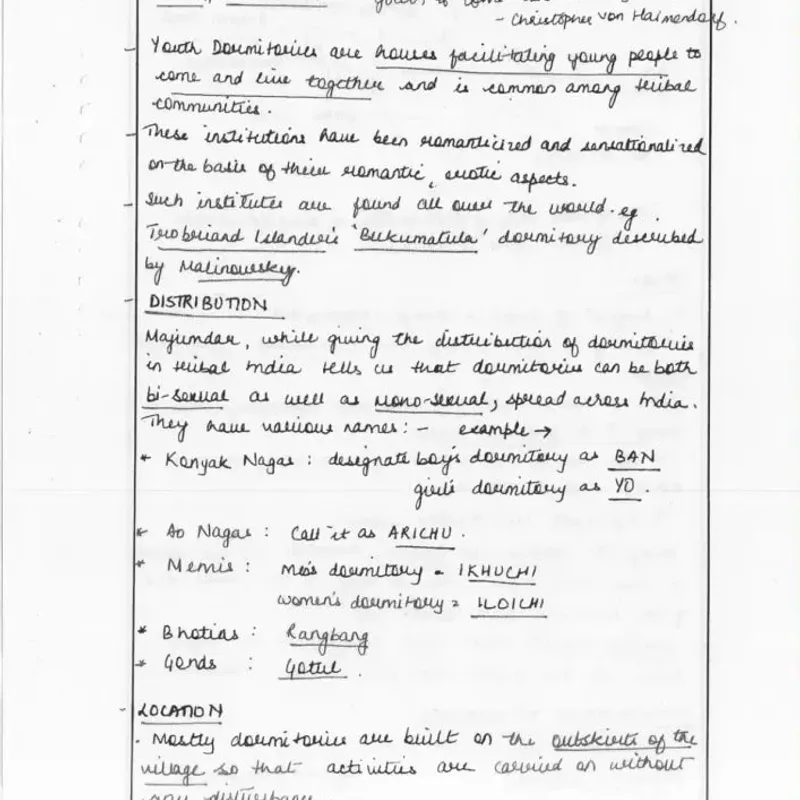 - Christopher Von Haimendorf.
- Youth Dormitories are houses facilitating young people to
come and live together and is common among tribal
communities.
- These institutions have been romanticized and sensationalized
on the basis of their romantic, exotic aspects.
- Such institutes are found all over the world. eg.
Trobriand Islander's 'Bukumatula' dormitory described
by Malinowsky.
- DISTRIBUTION
Majumdar, while giving the distribution of dormitories
in tribal India tells us that dormitories can be both
bi-sexual as well as mono-sexual, spread across India.
They have various names: - example →
* Konyak Nagas : designate boy's dormitory as BAN
girl's dormitory as YO.
* Ao Nagas : Call it as ARICHU.
* Memis : Men's dormitory = IKHUCHI
women's dormitory = ILOICHI
* Bhotias : Rangbang
* Gonds : Gotul.
- LOCATION
. Mostly dormitories are built on the outskirts of the
village so that activities are carried on without
any disturbance